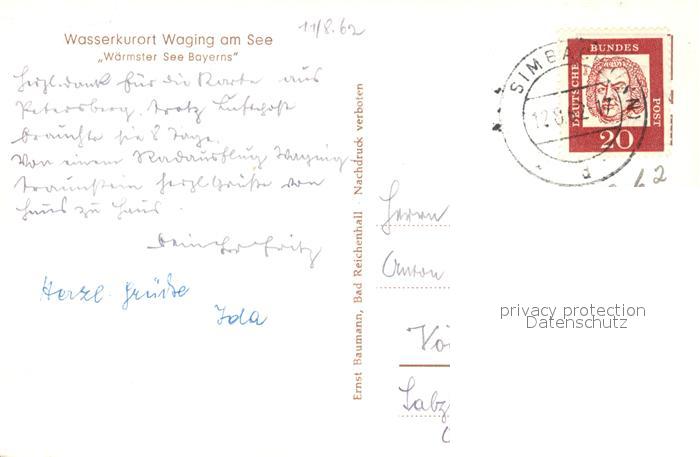 11/8.62
Wasserkurort Waging am See
„Wärmster See Bayerns"
Herzl. dank für die Karte aus
Petersberg, trotz Luftpost
brauchte sie 8 Tage.
Von einem Radausflug Waging-
Traunstein herzl Grüße von
Haus zu Haus.
Fritz
Herzl. Grüße
Ida
Ernst Baumann, Bad Reichenhall · Nachdruck verboten
SIMBACH (INN)
12.8.62.-17
a
DEUTSCHE
BUNDES
POST
20
62
Herrn
Anton
Salz
privacy protection
Datenschutz